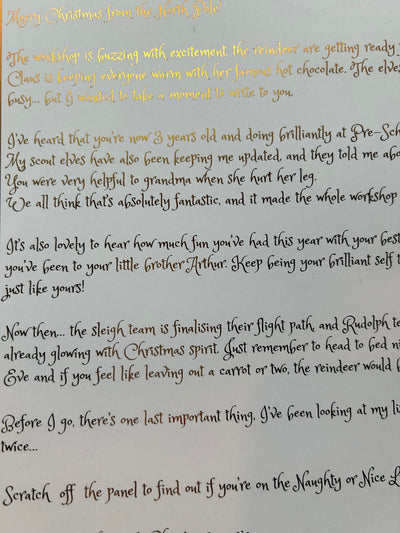 Merry Christmas from the North Pole!
The workshop is buzzing with excitement, the reindeer are getting ready
Claus is keeping everyone warm with her famous hot chocolate. The elves
busy... but I wanted to take a moment to write to you.
I've heard that you're now 3 years old and doing brilliantly at Pre-Sch
My scout elves have also been keeping me updated, and they told me abo
You were very helpful to grandma when she hurt her leg.
We all think that's absolutely fantastic, and it made the whole workshop
It's also lovely to hear how much fun you've had this year with your best
you've been to your little brother Arthur. Keep being your brilliant self t
just like yours!
Now then... the sleigh team is finalising their flight path, and Rudolph
already glowing with Christmas spirit. Just remember to head to bed ni
Eve and if you feel like leaving out a carrot or two, the reindeer would b
Before I go, there's one last important thing, I've been looking at my li
twice...
Scratch off the panel to find out if you're on the Naughty or Nice L